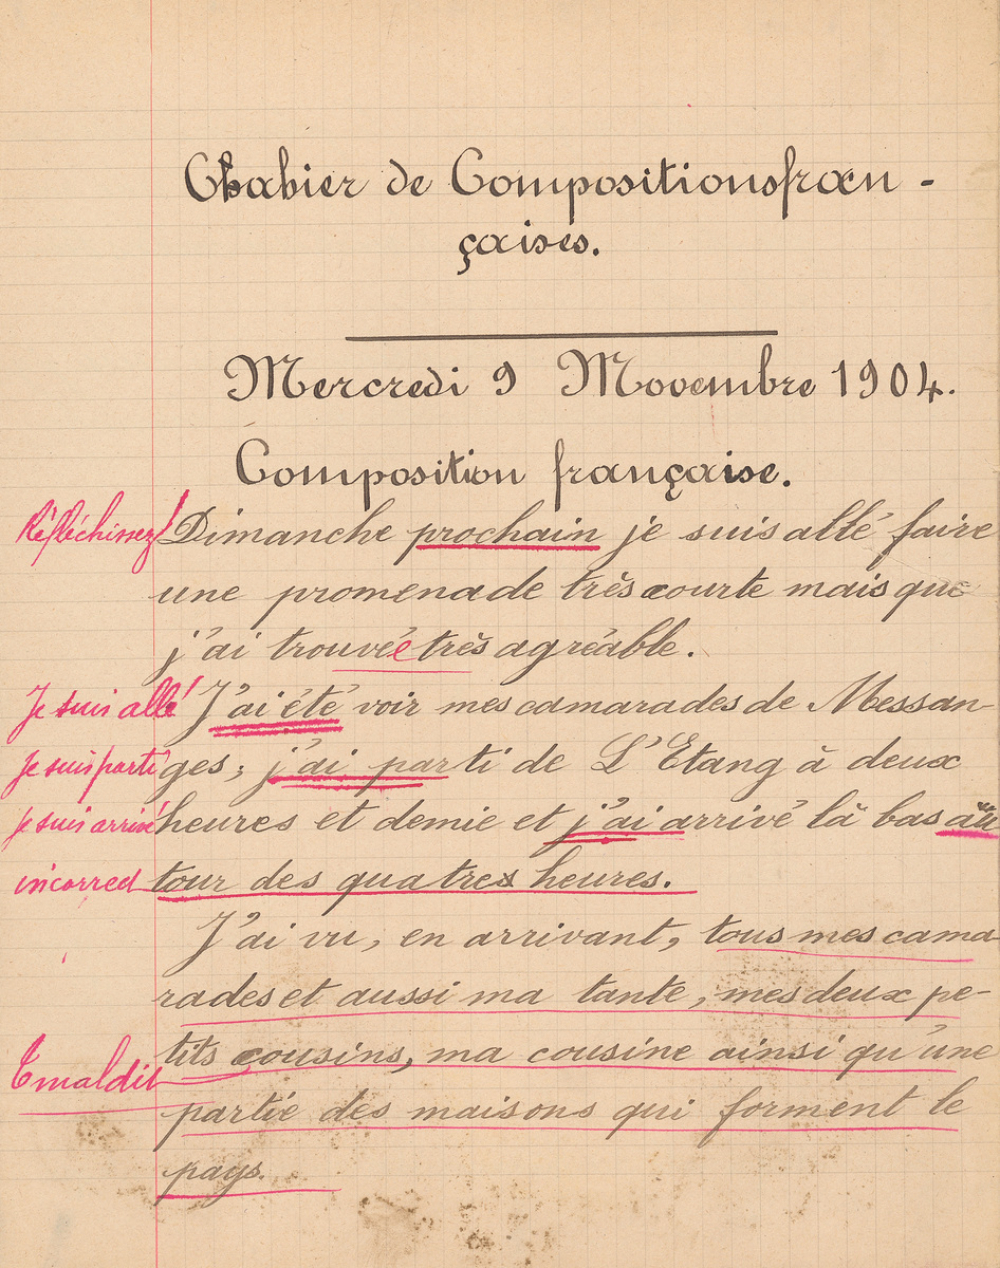 Cahier de Compositions fran-
çaises.
Mercredi 9 Novembre 1904.
Composition française.
Réfléchissez! Dimanche prochain je suis allé faire
une promenade très courte mais que
j'ai trouvée très agréable.
Je suis allé! J'ai été voir mes camarades de Messan-
Je suis parti ges; j'ai parti de L'Etang à deux
je suis arrivé heures et demie et j'ai arrivé là bas au
incorrect tour des quatres heures.
J'ai vu, en arrivant, tous mes cama
rades et aussi ma tante, mes deux pe-
tits cousins, ma cousine ainsi qu'une
mal dit partie des maisons qui forment le
pays.